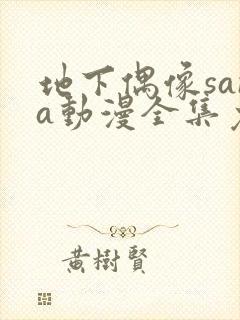 地下偶像sa
a動漫全集
黃樹賢